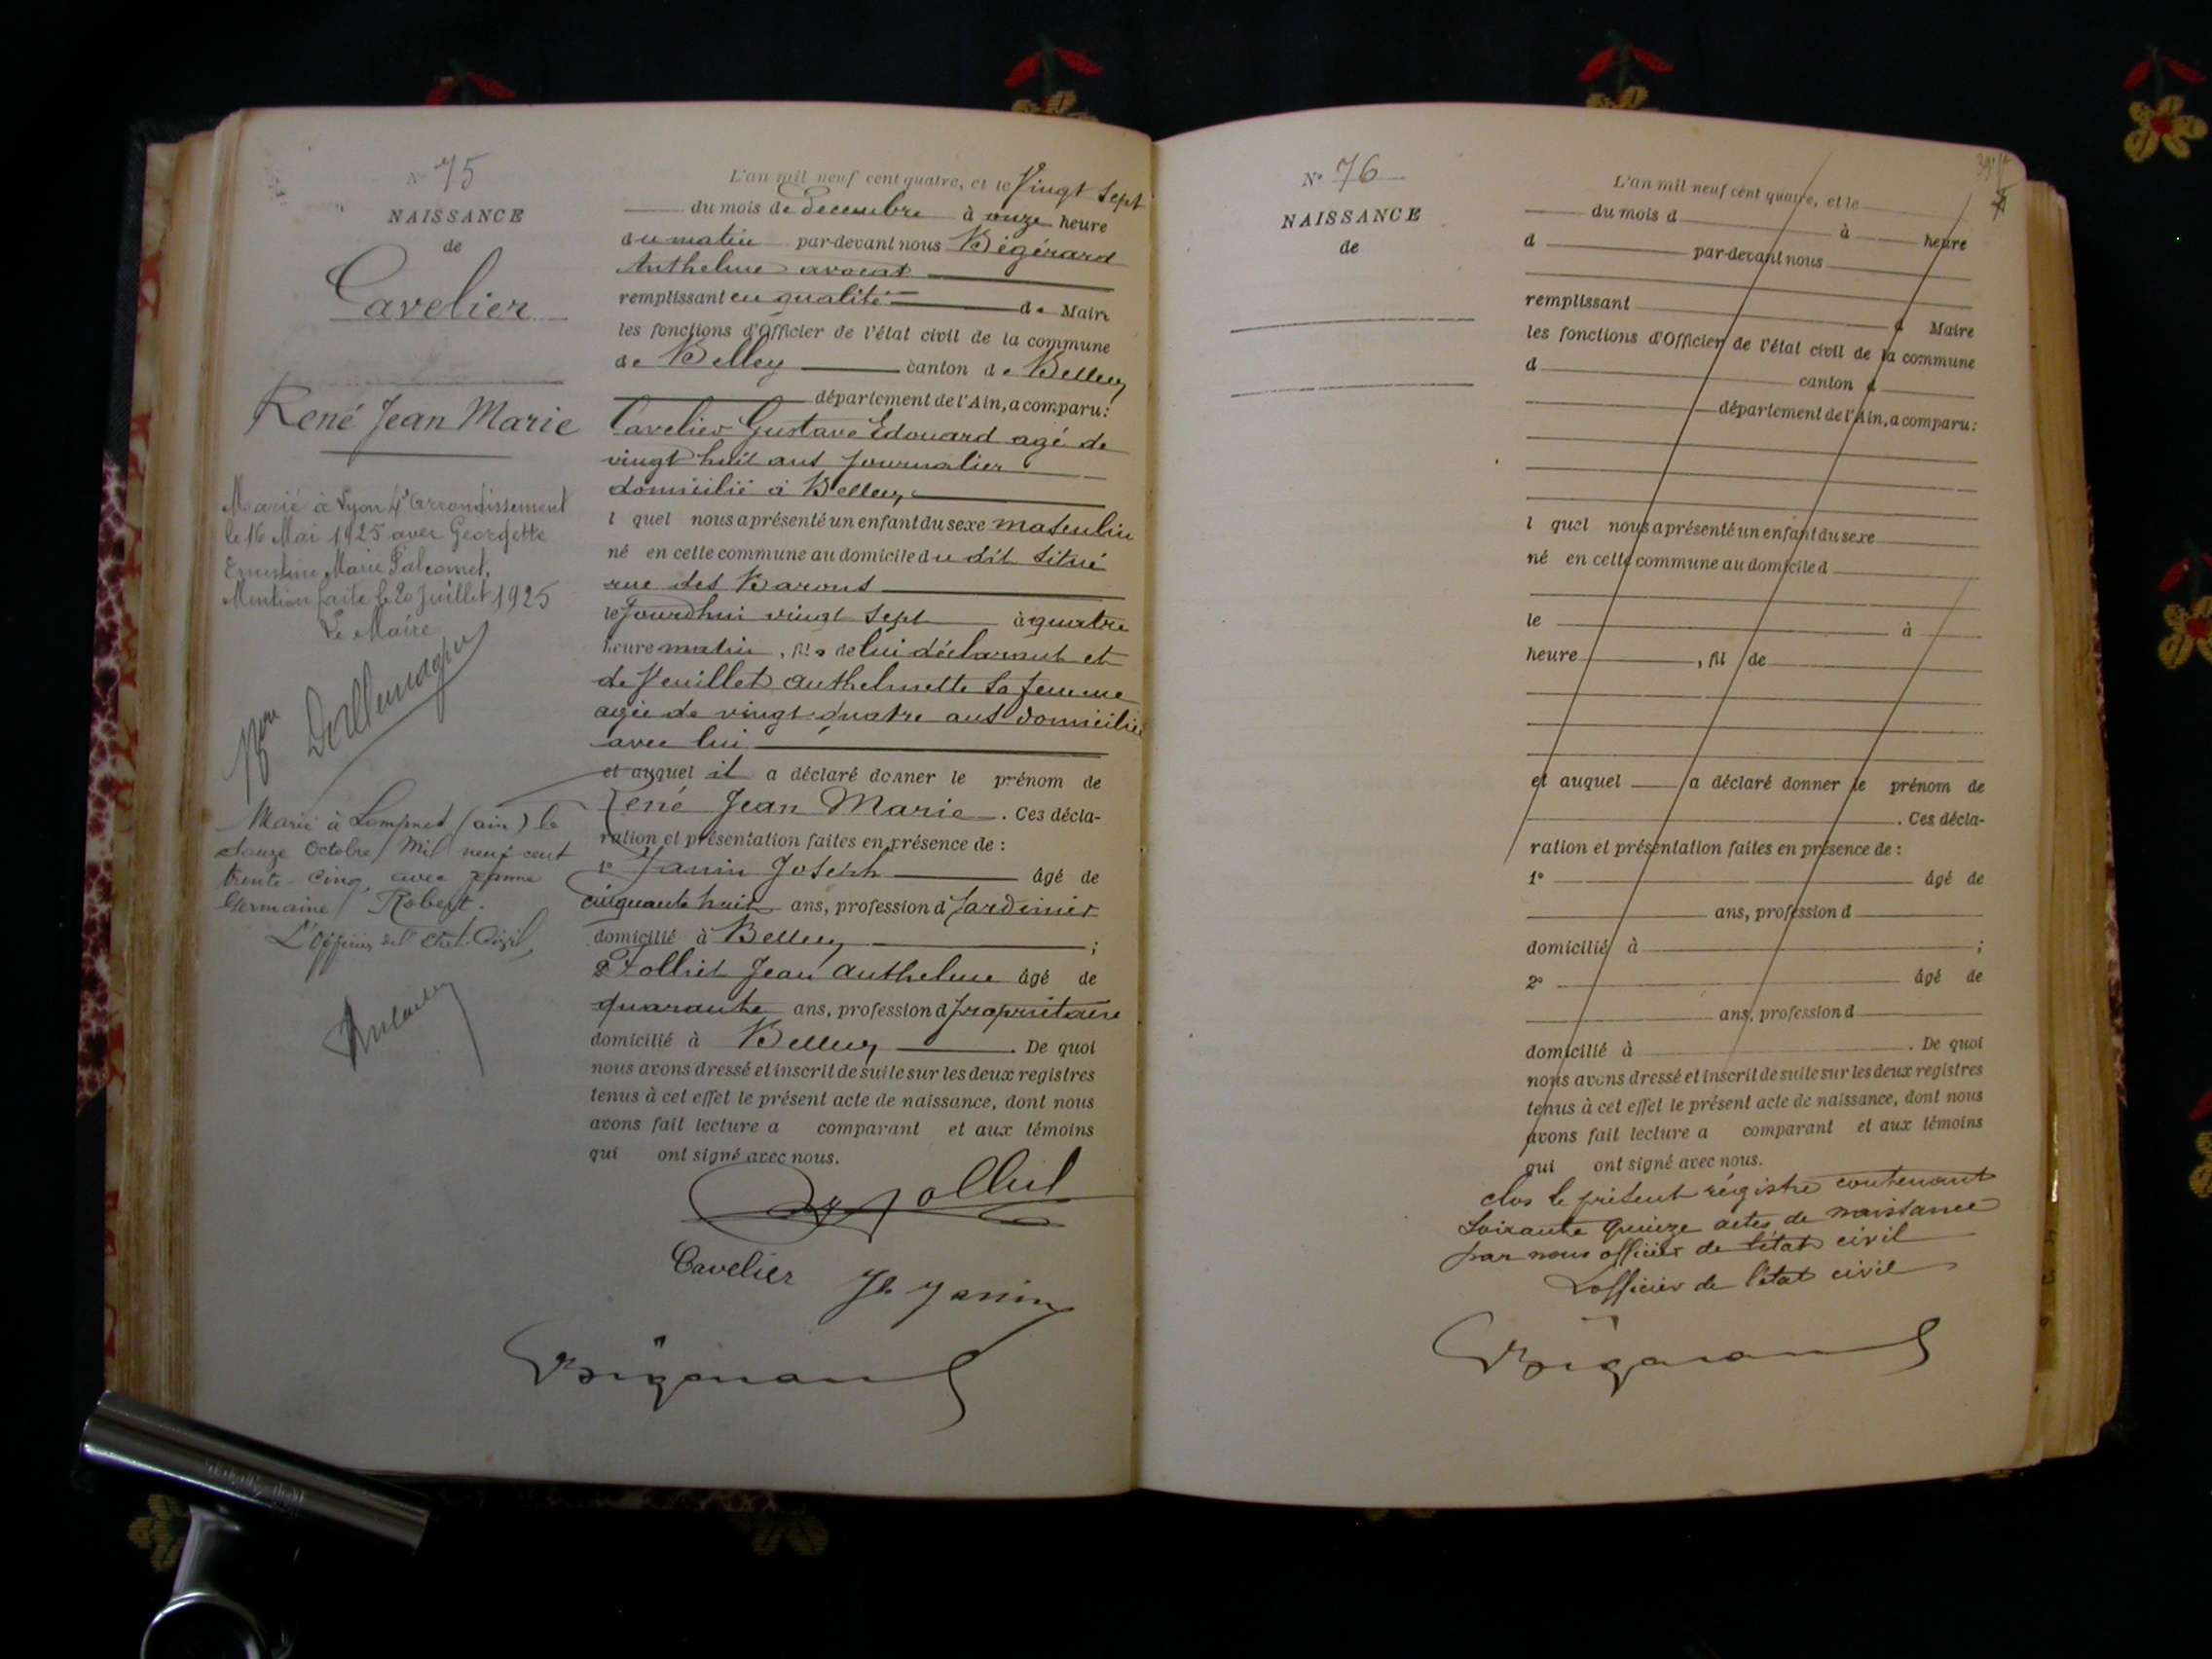 N° 75
NAISSANCE
de
Cavelier
René Jean Marie
Marié à Lyon 4e arrondissement
le 16 Mai 1925 avec Georgette
Ernestine Marie
Mention faite le 20 Juillet 1925
Le Maire
Dallemagne
Marié à Lompnes (ain) le
douze Octobre Mil neuf cent
trente-cinq, avec Jeanne
Germaine Robert.
L'officier de l'Etat-Civil,
L'an mil neuf cent quatre, et le Vingt Sept
du mois de Decembre à onze heure
du matin par-devant nous Bigérard
Anthelme avocat
remplissant en qualité de Maire
les fonctions d'Officier de l'état civil de la commune
de Belley canton de Belley
département de l'Ain, a comparu:
Cavelier Gustave Edouard agé de
vingt huit ans Journalier
domicilié à Belley
l quel nous a présenté un enfant du sexe masculin
né en cette commune au domicile du dit situé
rue des Barons
le Jourdhui vingt sept à quatre
heure matin, fils de lui déclarant et
de Veuillet anthelmette sa femme
agée de vingt quatre ans domiciliée
avec lui
et auquel il a déclaré donner le prénom de
René Jean Marie. Ces décla-
ration et présentation faites en présence de:
1° Janin Joseph âgé de
cinquante huit ans, profession d Jardinier
domicilié à Belley;
2° Folliet Jean anthelme âgé de
quarante ans, profession d propriétaire
domicilié à Belley. De quoi
nous avons dressé et inscrit de suite sur les deux registres
tenus à cet effet le présent acte de naissance, dont nous
avons fait lecture a comparant et aux témoins
qui ont signé avec nous.
Folliet
Cavelier Jh Janin
N° 76
NAISSANCE
de
L'an mil neuf cent quatre, et le
du mois d à heure
d par-devant nous
remplissant d Maire
les fonctions d'Officier de l'état civil de la commune
d canton d
département de l'Ain, a comparu:
l quel nous a présenté un enfant du sexe
né en cette commune au domicile d
le à
heure, fil de
et auquel a déclaré donner le prénom de
. Ces décla-
ration et présentation faites en présence de:
1° âgé de
ans, profession d
domicilié à ;
2° âgé de
ans, profession d
domicilié à . De quoi
nous avons dressé et inscrit de suite sur les deux registres
tenus à cet effet le présent acte de naissance, dont nous
avons fait lecture a comparant et aux témoins
qui ont signé avec nous.
clos le présent régistre contenant
soixante quinze actes de naissance
par nous officier de l'état civil
L'officier de l'état civil